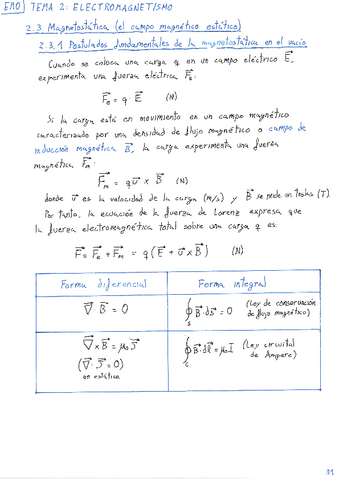 EMO TEMA 2: ELECTROMAGNETISMO
2.3. Magnetostática (el campo magnético estático)
2.3.1 Postulados fundamentales de la magnetostática en el vacío
Cuando se coloca una carga q en un campo eléctrico E⃗,
experimenta una fuerza eléctrica F⃗e:
F⃗e = q E⃗ (N)
Si la carga está en movimiento en un campo magnético
caracterizado por una densidad de flujo magnético o campo de
inducción magnética B⃗, la carga experimenta una fuerza
magnética F⃗m:
F⃗m = q u⃗ × B⃗ (N)
donde u⃗ es la velocidad de la carga (m/s) y B⃗ se mide en teslas (T).
Por tanto, la ecuación de la fuerza de Lorenz expresa que
la fuerza electromagnética total sobre una carga q es:
F⃗ = F⃗e + F⃗m = q (E⃗ + u⃗ × B⃗) (N)
Forma diferencial Forma integral
∇⃗ · B⃗ = 0 ∮s B⃗ · ds⃗ = 0 (Ley de conservación
de flujo magnético)
∇⃗ × B⃗ = μ₀ J⃗ ∮c B⃗ · dl⃗ = μ₀ I (Ley circuital
de Ampere)
(∇⃗ · J⃗ = 0)
en estática
31